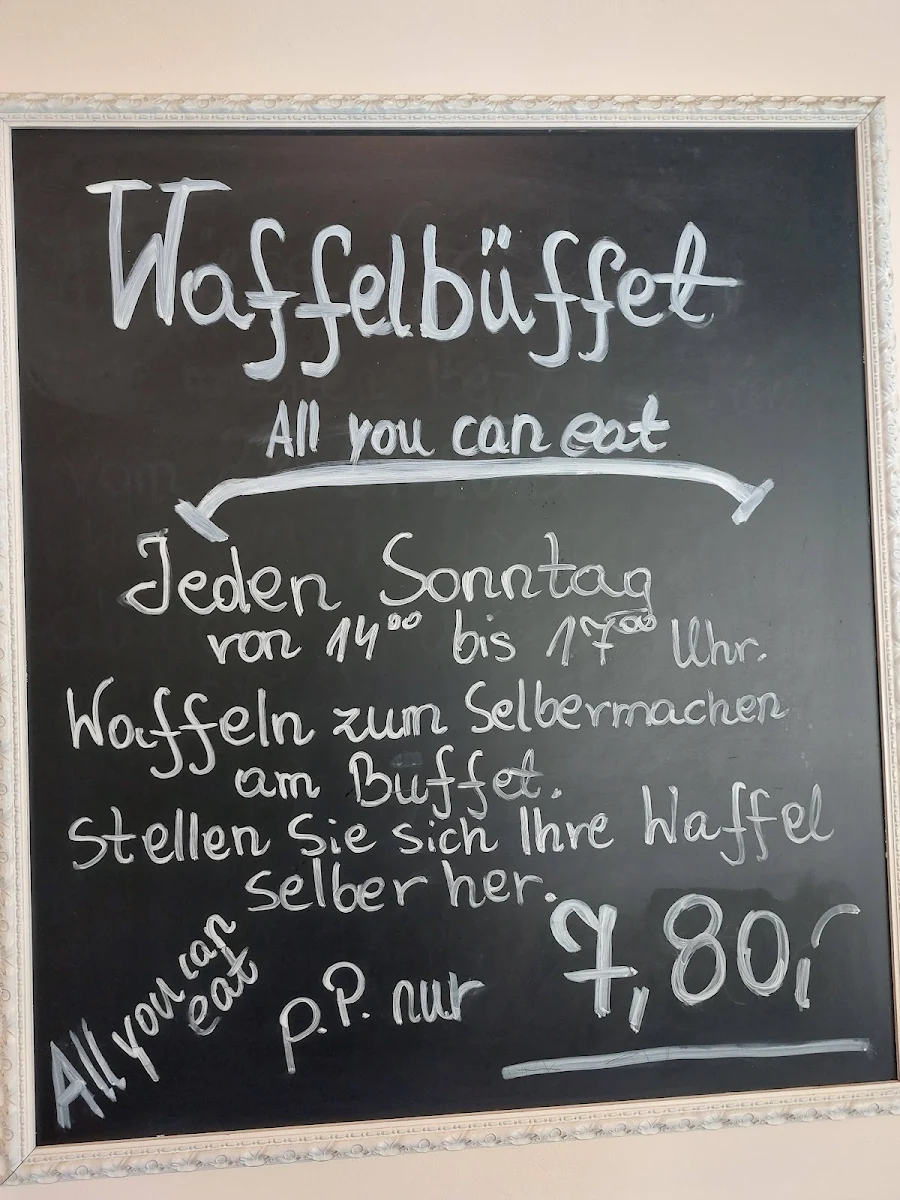 Waffelbüffet
All you can eat
Jeden Sonntag
von 14⁰⁰ bis 17⁰⁰ Uhr.
Waffeln zum Selbermachen
am Buffet.
Stellen Sie sich Ihre Waffel
selber her.
All you can
eat
p.P. nur
7,80,-